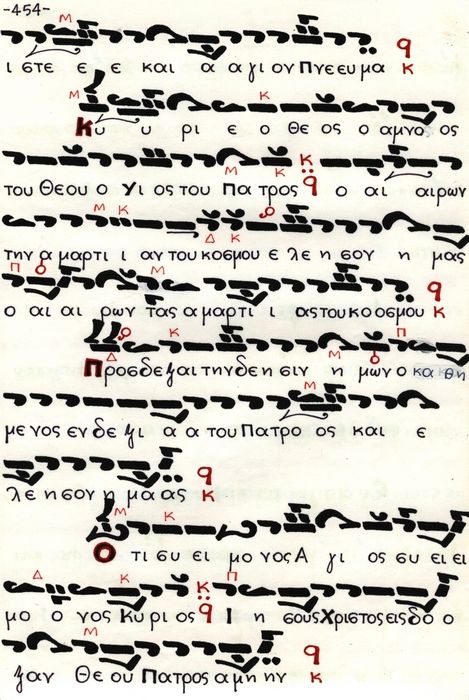 -454-
ι στε ε ε και α α γι ον Πνε ευ μα
Κυ υ ρι ε ο θε ος ο αμνο ος
του Θεου ο Υι ος του Πα τρος ο αι αιρων
την α μαρτι ι αν του κοσμου ε λε η σον η μας
ο αι αι ρων τας α μαρτι ι ας του κο οσμου
Προσδεξαι την δε η σιν η μων ο κα θη
με νος εν δε ξι α α του Πατρο ος και ε
λε η σον η μα ας
Ο τι συ ει μο νος Α γι ος συ ει ει
μο ο νος Κυ ρι ος Ι η σους Χριστος εις δο ο
ξαν Θε ου Πατρος α μη ην